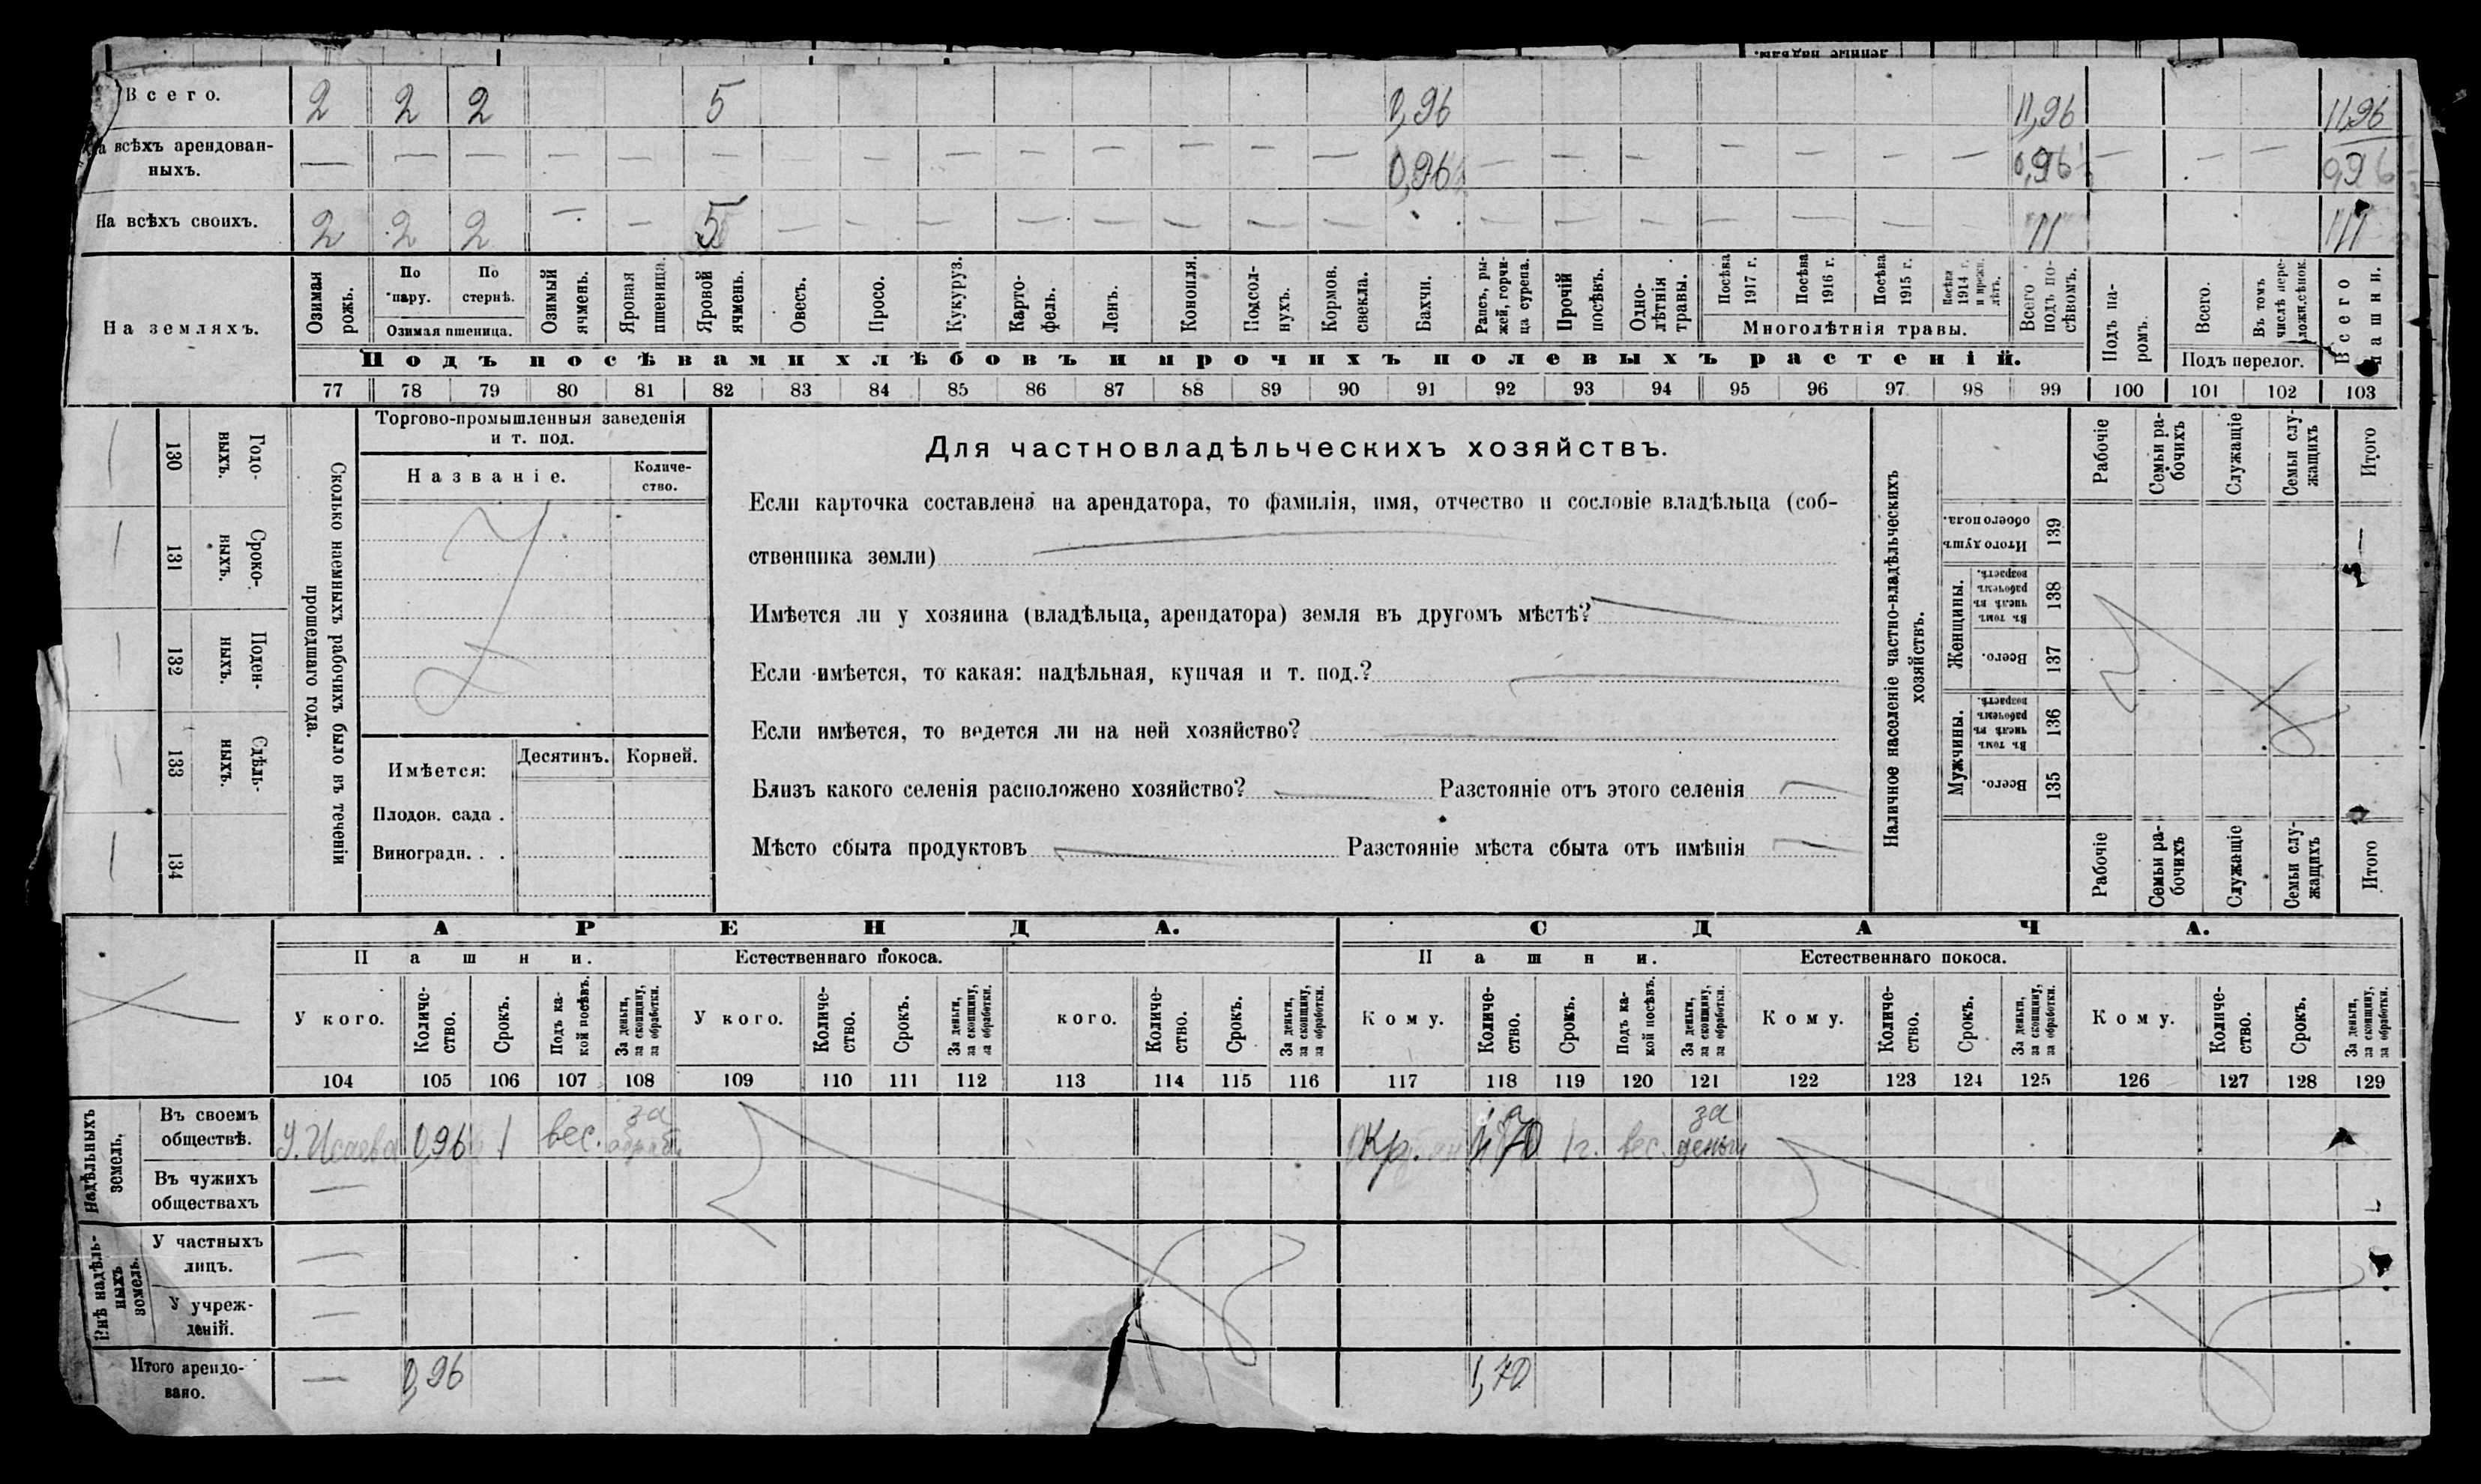 Всего. 2 2 2 5 0,96 11,96 11,96
На всѣхъ арендован-
ныхъ. — — — — — — — — — — — — — — 0,96 — — — — — — — 0,96 — — — 0,96
На всѣхъ своихъ. 2 2 2 — — 5 — — — — — — — — — — — — — — — 11 11
На земляхъ.
Озимая рожь.
По пару.
По стернѣ.
Озимая пшеница.
Озимый ячмень.
Яровая пшеница.
Яровой ячмень.
Овесъ.
Просо.
Кукуруз.
Карто-
фель.
Ленъ.
Конопля.
Подсол-
нухъ.
Кормов.
свекла.
Бахчи.
Рапсъ, ры-
жей, горчи-
ца сурепа.
Прочій
посѣвъ.
Одно-
лѣтнія
травы.
Посѣва
1917 г.
Посѣва
1916 г.
Посѣва
1915 г.
Посѣва
1914 г.
и прежн.
лѣтъ.
Многолѣтнія травы.
Всего
подъ по-
сѣвомъ.
Подъ па-
ромъ.
Всего.
Въ томъ
числѣ пере-
ложн.сѣнок.
Подъ перелог.
Всего
пашни.
Подъ посѣвами хлѣбовъ и прочихъ полевыхъ растеній.
77 78 79 80 81 82 83 84 85 86 87 88 89 90 91 92 93 94 95 96 97 98 99 100 101 102 103
Годо-
ныхъ.
130
Сроко-
ныхъ.
131
Поден-
ныхъ.
132
Сдѣль-
ныхъ.
133
134
Сколько наемныхъ рабочихъ было въ теченіи
прошедшаго года.
Торгово-промышленныя заведенія
и т. под.
Названіе.
Количе-
ство.
Имѣется:
Десятинъ. Корней.
Плодов. сада .
Виноградн. . .
Для частновладѣльческихъ хозяйствъ.
Если карточка составлена на арендатора, то фамилія, имя, отчество и сословіе владѣльца (соб-
ственника земли)
Имѣется ли у хозяина (владѣльца, арендатора) земля въ другомъ мѣстѣ?
Если имѣется, то какая: надѣльная, купчая и т. под.?
Если имѣется, то ведется ли на ней хозяйство?
Близъ какого селенія расположено хозяйство? Разстояніе отъ этого селенія
Мѣсто сбыта продуктовъ Разстояніе мѣста сбыта отъ имѣнія
Наличное населеніе частно-владѣльческихъ
хозяйствъ.
Рабочіе
Семьи ра-
бочихъ
Служащіе
Семьи слу-
жащихъ
Итого
Итого душъ
обоего пола.
139
Женщины.
Въ томъ
числѣ въ
рабочемъ
возрастѣ.
138
Всего.
137
Мужчины.
Въ томъ
числѣ въ
рабочемъ
возрастѣ.
136
Всего.
135
Рабочіе
Семьи ра-
бочихъ
Служащіе
Семьи слу-
жащихъ
Итого
АРЕНДА. СДАЧА.
Пашни. Естественнаго покоса. Пашни. Естественнаго покоса.
У кого.
Количе-
ство.
Срокъ.
Подъ ка-
кой посѣвъ.
За деньги,
за скопщину,
за обработки.
У кого.
Количе-
ство.
Срокъ.
За деньги,
за скопщину,
за обработки.
кого.
Количе-
ство.
Срокъ.
За деньги,
за скопщину,
за обработки.
Кому.
Количе-
ство.
Срокъ.
Подъ ка-
кой посѣвъ.
За деньги,
за скопщину,
за обработки.
Кому.
Количе-
ство.
Срокъ.
За деньги,
за скопщину,
за обработки.
Кому.
Количе-
ство.
Срокъ.
За деньги,
за скопщину,
за обработки.
104 105 106 107 108 109 110 111 112 113 114 115 116 117 118 119 120 121 122 123 124 125 126 127 128 129
Надѣльныхъ
земель.
Въ своемъ
обществѣ. У. Исаева 0,96 1 вес. за Кр. 1,70 1 г. вес. за деньги
Въ чужихъ
обществахъ —
Внѣ надѣль-
ныхъ
земель.
У частныхъ
лицъ. —
У учреж-
деній. —
Итого арендо-
вано. — 0,96 1,70